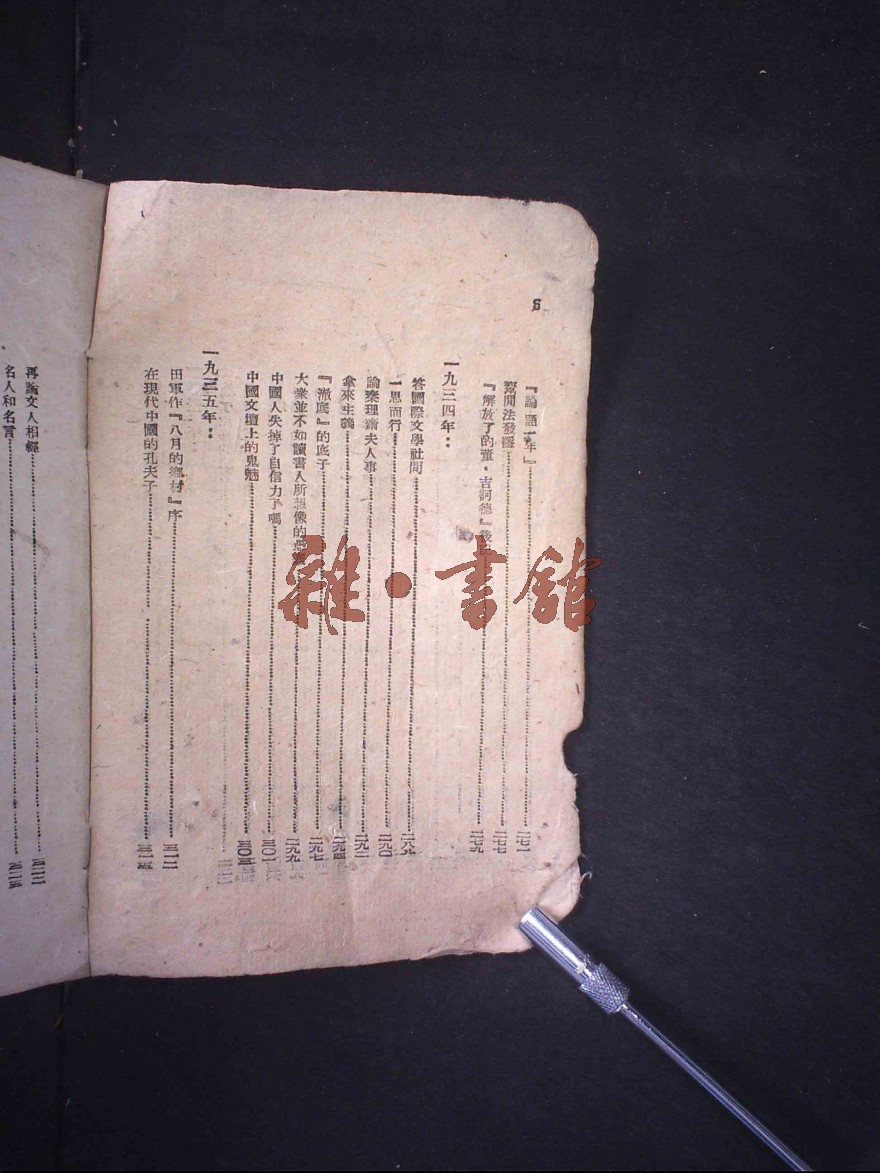 6
『論語一年』…………二七一
『解放了的董·吉訶德』後…………二七九
一九三四年：
答國際文學社問…………二八九
一思而行…………二九〇
論秦理齋夫人事…………二九二
拿來主義…………二九四
『徹底』的底子…………二九七
大衆並不如讀書人所想像的…………二九九
中國人失掉了自信力了嗎…………三〇一
中國文壇上的鬼魅…………三〇三
一九三五年：
田軍作『八月的鄉村』序…………三一二
在現代中國的孔夫子…………三一五
再論文人相輕…………三二二
名人和名言…………三二五
雜·書館